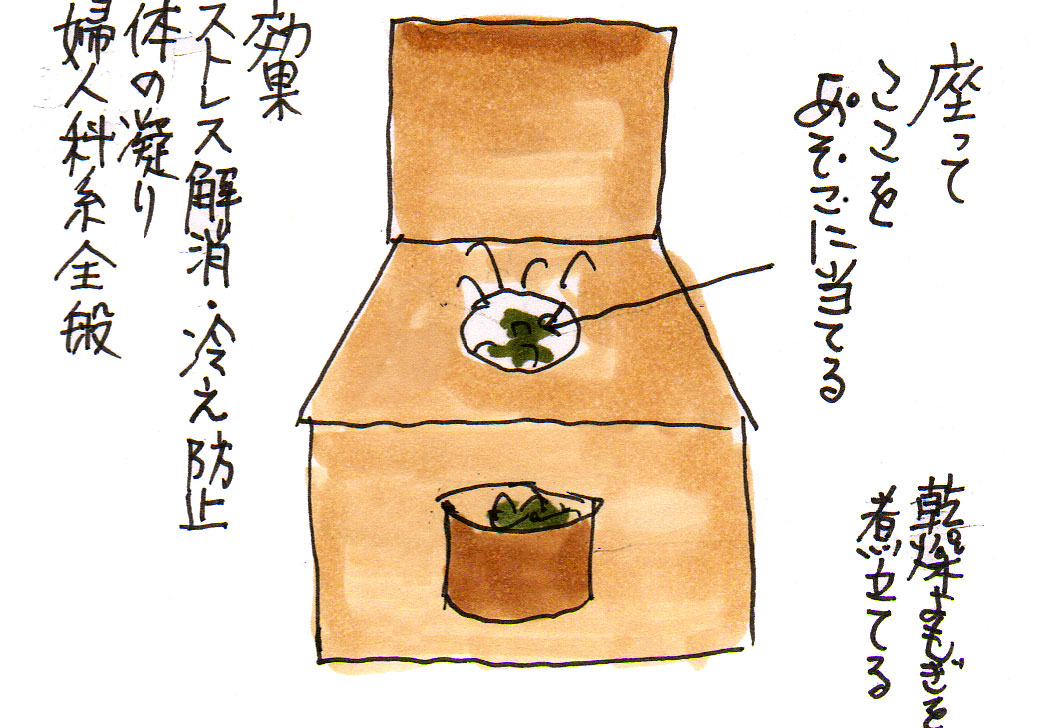 座って
ここを
あそこに当てる
乾燥よもぎを
煮立てる
効果
ストレス解消・冷え防止
体の凝り
婦人科系全般